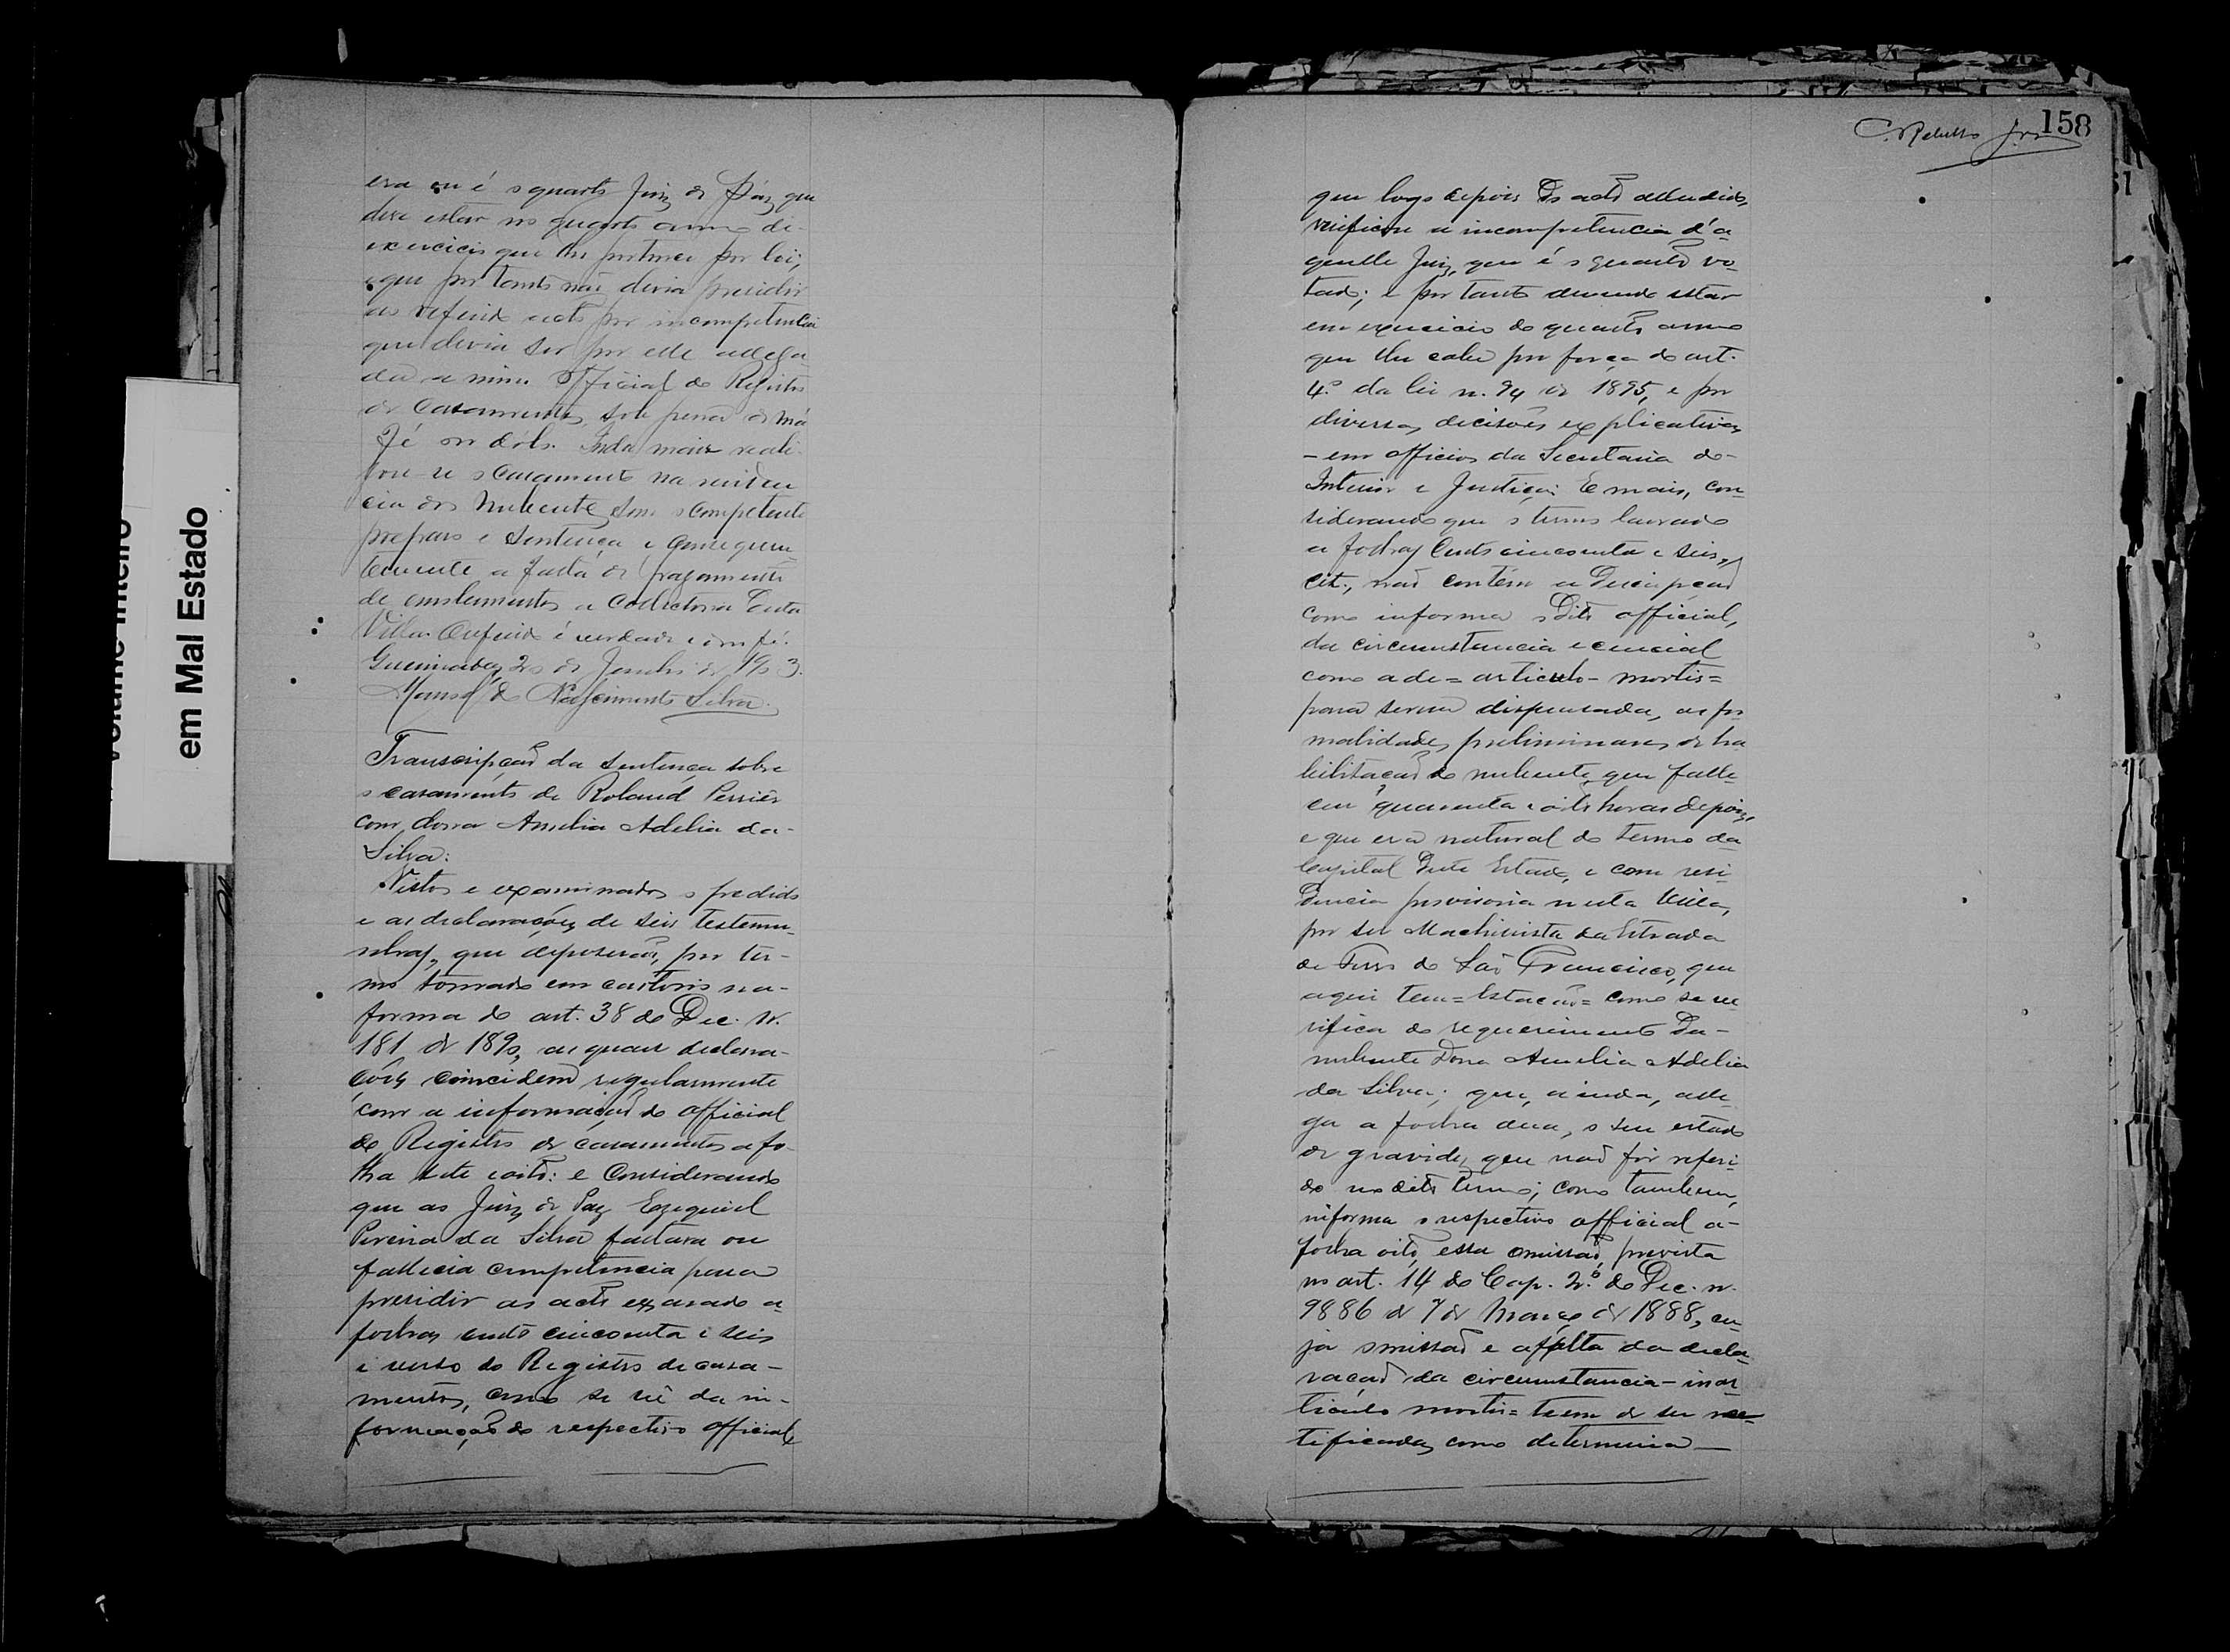 Volume Inteiro
em Mal Estado
era ou é o quarto Juiz de Paz que
deve estar no quarto anno de
exercicio que lhe pertence por lei,
e que por tanto não devia presidir
ao referido acto por incompetencia
que devia ser por elle allega
da a mim Official do Registro
de Casamentos, sob pena de má
fé ou dólo. Inda mais reali
sou-se o casamento na residen
cia dos nubentes sem o competente
preparo e sentença e conseguin
temente a falta de pagamento
de emolumentos a Collectoria desta
Villa. O referido é verdade e dou fé.
Queimadas, 20 de Junho de 1903.
Manoel do Nascimento Silva.
Transcripção da sentença sobre
o casamento de Roland Perrier
com dona Amelia Adelia da
Silva:
Vistos e examinados o predido
e as declarações de seis testemu
nhas, que depuserão, por ter-
mo tomado em cartorio na
forma do art. 38 do Dec. N.
181 de 1890, as quaes declara-
ções coincidem regularmente
com a informação do official
do Registro de casamentos a fo
lha sete e oito: e Considerando
que ao Juiz de Paz Ezequiel
Pereira da Silva faltava ou
fallecia competencia para
presidir ao acto exarado a
folhas cento cincoenta e seis
e verso do Registro de casa-
mentos, como se vê da in-
formação do respectivo official
158
que logo depois do acto alludido,
verificou a incompetencia d'a
quelle Juiz, que é o quarto vo
tado; e por tanto devendo estar
em exercicio do quarto anno
que lhe cabe por força do art.
4.º da lei n. 94 de 1895, e por
diversas decisões explicativas
- em officios da Secretaria do
Interior e Justiça: E mais, con
siderando que o termo lavrado
a folhas cento cincoenta e seis,
cit., não contém a descripção
como informa o dito official,
da circumstancia essencial
como a de = articulo - mortis =
para serem dispensadas, as for
malidades preliminares de ha
bilitação do nubente, que falle
ceu quarenta e oito horas depois,
e que era natural do termo da
Capital deste Estado, e com resi
dencia provisoria nesta Villa,
por ser Machinista da Estrada
de Ferro de São Francisco, que
aqui tem = Estação = como se ve
rifica do requerimento da
nubente Dona Amelia Adelia
da Silva; que, ainda, alle
ga a folha duas, o seu estado
de gravidez, que não foi referi
do no dito termo; como tambem,
informa o respectivo official a
folha oito, essa omissão, prevista
no art. 14 do Cap. 2.º do Dec. n.
9886 de 7 de Março de 1888, cu
ja omissão e a falta da decla
ração da circumstancia - in ar
ticulo mortis = tem de ser rec
tificadas, como determina